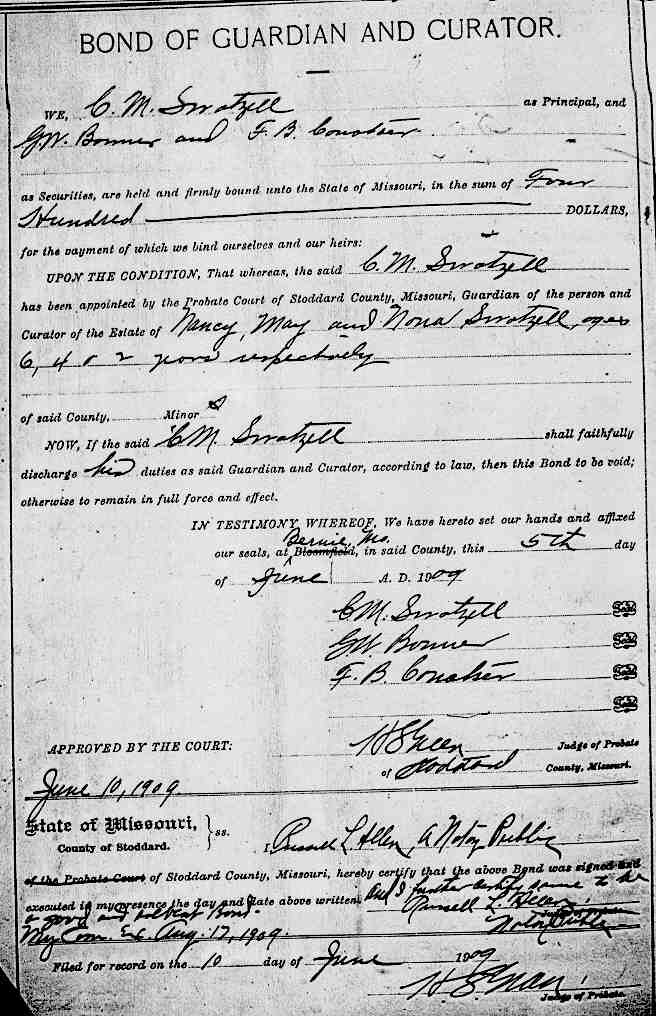 BOND OF GUARDIAN AND CURATOR.
WE, C. M. Swatzell as Principal, and
G.W. Bonner and F. B. Conatser
as Securities, are held and firmly bound unto the State of Missouri, in the sum of Four
Hundred DOLLARS,
for the payment of which we bind ourselves and our heirs:
UPON THE CONDITION, That whereas, the said C. M. Swatzell
has been appointed by the Probate Court of Stoddard County, Missouri, Guardian of the person and
Curator of the Estate of Nancy, May and Nona Swatzell, ages
6, 4 & 2 years respectively
of said County, Minor s
NOW, If the said C M. Swatzell shall faithfully
discharge his duties as said Guardian and Curator, according to law, then this Bond to be void;
otherwise to remain in full force and effect.
IN TESTIMONY WHEREOF, We have hereto set our hands and affixed
Bernie, Mo.
our seals, at Bloomfield, in said County, this 5th day
of June A. D. 1909
C M. Swatzell Seal
G W. Bonner Seal
F. B. Conatser Seal
Seal
APPROVED BY THE COURT: H S Green Judge of Probate
of Stoddard County, Missouri.
June 10, 1909.
State of Missouri, ss.
County of Stoddard. I, Russell L. Allen, A Notary Public
of the Probate Court of Stoddard County, Missouri, hereby certify that the above Bond was signed and
executed in my presence the day and date above written, and I further certify same to be
a good and solvent Bond. Russell L. Allen
My Com. Ex. Aug. 17, 1909. Notary Public
Filed for record on the 10 day of June 1909
H. S. Green
Judge of Probate.